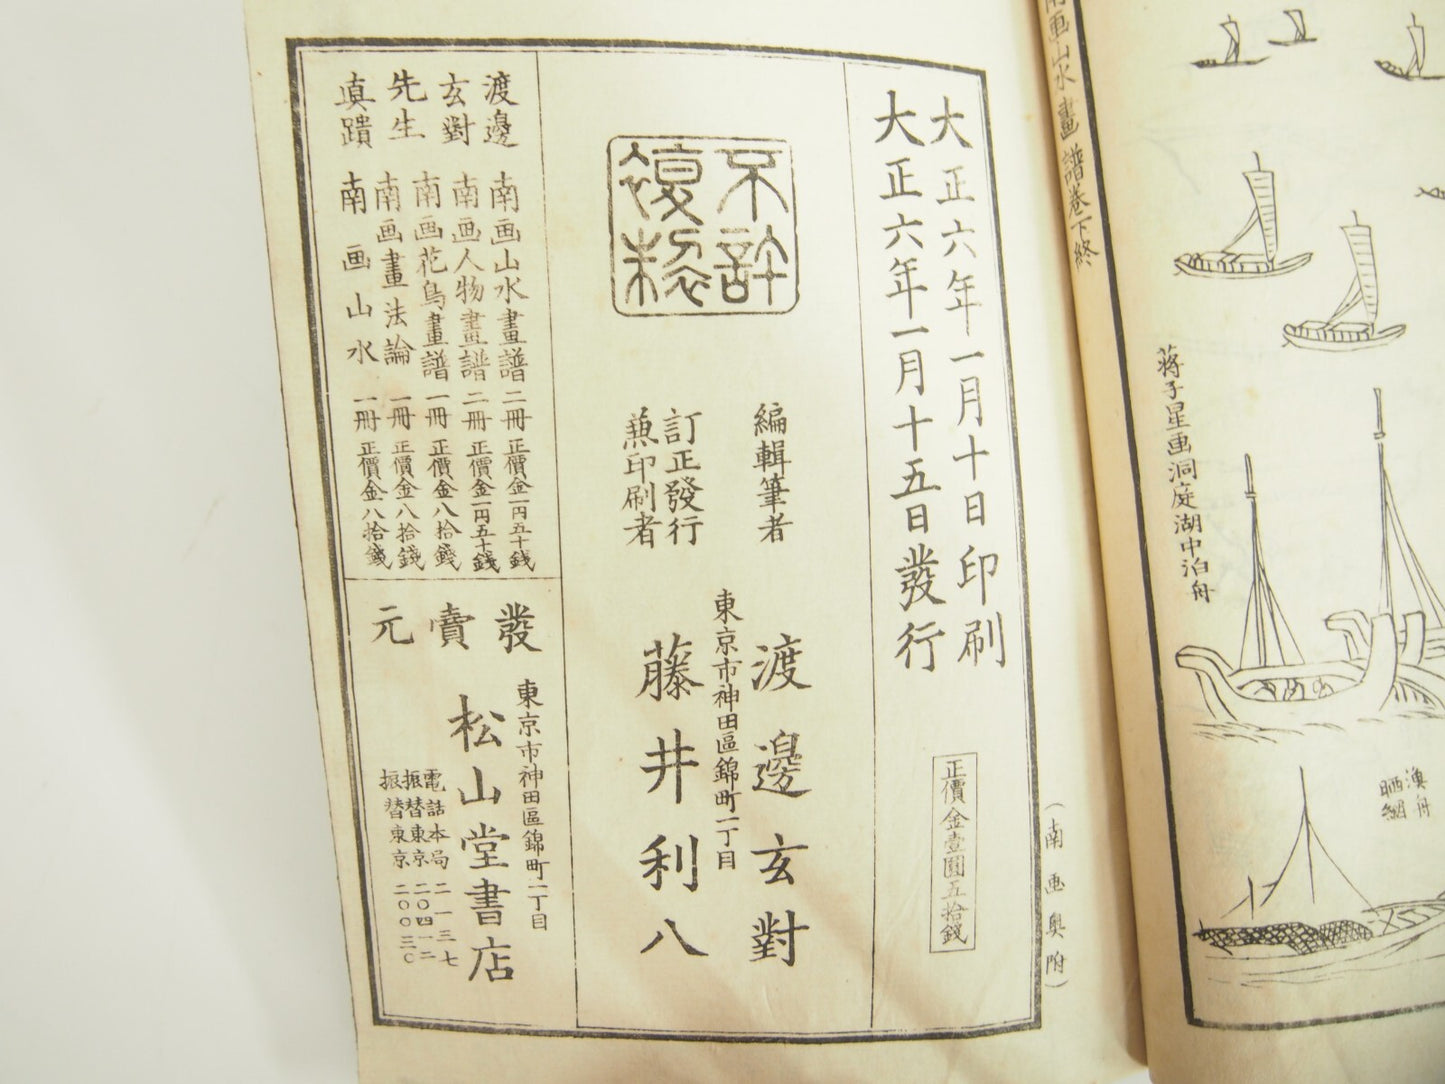 漁舟
晒網
蒋子星画洞庭湖中泊舟
南画山水畫譜卷下終
(南画奥附)
大正六年一月十日印刷
大正六年一月十五日發行
正價金壹圓五拾錢
不許
復刻
編輯筆者 渡邊玄對
東京市神田區錦町一丁目
訂正發行
兼印刷者 藤井利八
渡邊
玄對
先生
眞蹟
南画山水畫譜 二冊 正價金一円五十錢
南画人物畫譜 二冊 正價金一円五十錢
南画花鳥畫譜 一冊 正價金八拾錢
南画畫法論 一冊 正價金八拾錢
南画山水 一冊 正價金八拾錢
發賣元
東京市神田區錦町一丁目
松山堂書店
電話本局二一三七
振替東京二〇四一二
振替東京二〇〇三〇